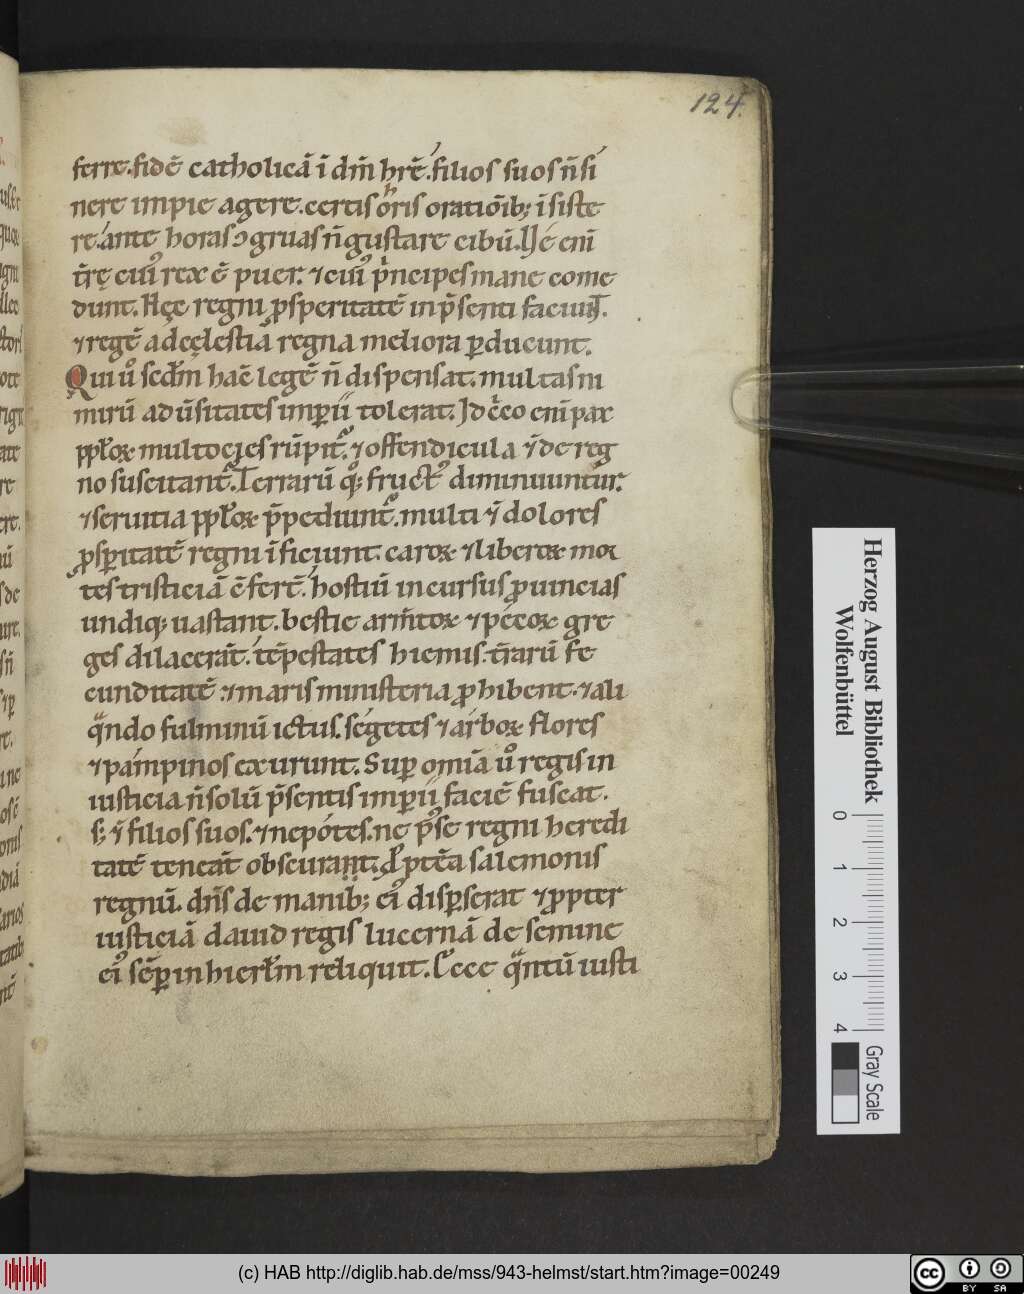 124.
ferre. fidē catholicā ī dm̄ hr̄e. filios suos n̄ si
nere impie agere. certis ohris oratiōib; īsiste
re. ante horas ↄgruas n̄ gustare cibū. Ve enī
tr̄ę cui᷒ rex ē puer. ⁊ cui᷒ pͥncipes mane come
dunt. Hęc regni ꝓsperitatē in p̄senti faciunt.
⁊ regē ad cęlestiā regna meliora ꝑducunt.
Qui uͦ scdm̄ hac̄ legē n̄ dispensat. multas ni
mirū aduͨsitates imꝑii tolerat. Idcͥco enī pax
ppl̄oꝝ multocies rūpit᷑. ⁊ offendicula ⁊ī de reg
no suscitant᷑. Terrarū qͦ; fruct᷒ diminuuntur.
⁊ seruitia ppl̄oꝝ p̄pediunt᷑. multi ⁊ī dolores
ꝓsꝑitatē regni īficiunt. caroꝝ ⁊ liberoꝝ mor
tes tristiciā ↄ̄ferē. hostiū incursus ꝓuincias
undiq; uastant. bestie arm̄toꝝ ⁊ pecoꝝ gre
ges dilacerāt. tēpestates hiemis. tr̄arū fe
cunditatē ⁊ maris ministeria ꝓhibent. ⁊ ali
qͣndo fulminū ictus. segetes ⁊ arboꝝ flores
⁊ pampinos exurunt. Suꝑ omīa uͦ regis in
iusticia n̄ solū p̄sentis imꝑii faciē fuscat.
s; ⁊ī filios suos. ⁊ nepotes. ne p᷒se regni heredi
tatē teneāt obscurant. Pptēa salemonis
regnū. dn̄s de manib; ei᷒ disꝑserat ⁊ ꝓpter
iusticiā dauid regis lucernā de semine
ei᷒ sēꝑ in hierl̄m reliquit. Ecce qͣntū iusti
Herzog August Bibliothek
Wolfenbüttel
0 1 2 3 4
Gray Scale
(c) HAB http://diglib.hab.de/mss/943-helmst/start.htm?image=00249
cc BY SA